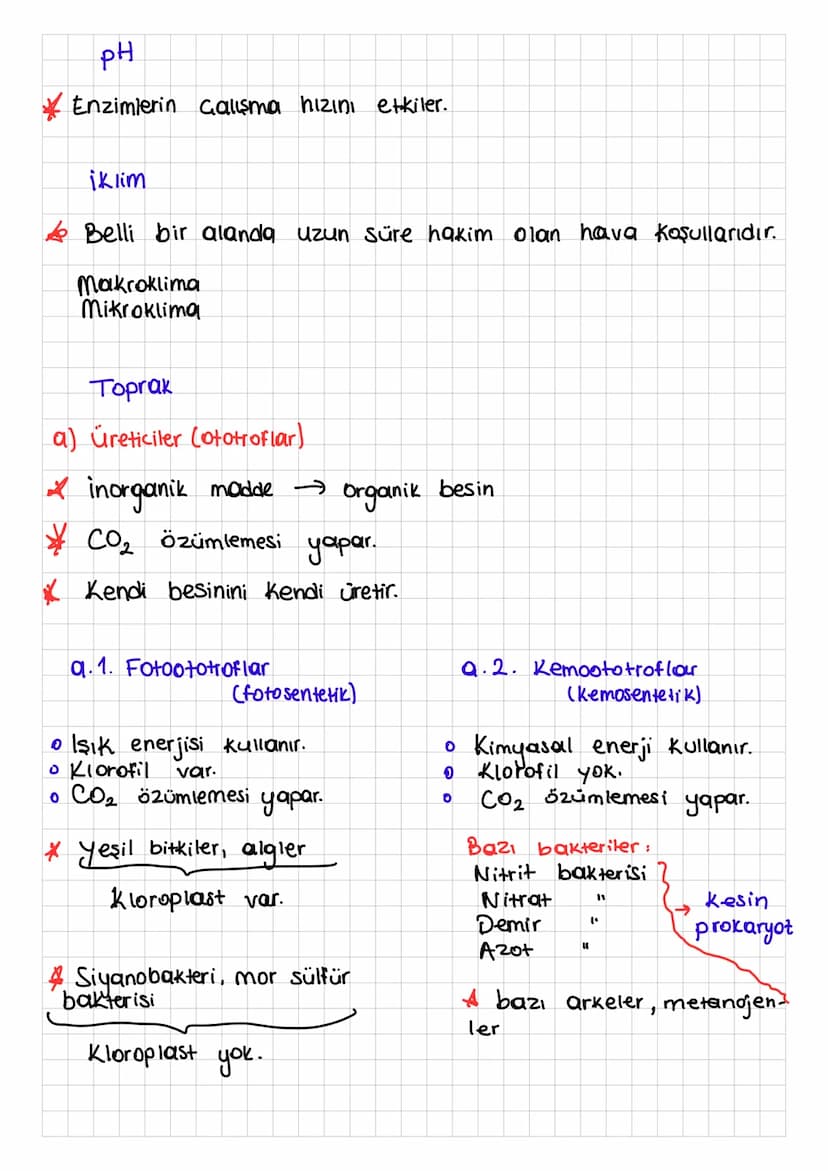 pH
Enzimlerin çalışma hızını etkiler.
iklim
Belli bir alanda uzun süre hakim olan hava koşullarıdır.
Makroklima
Mikroklima
Toprak
a) Üreticiler (ototroflar)
inorganik madde → organik besin
CO₂ özümlemesi yapar.
Kendi besinini kendi üretir.
a.1. Fotoototroflar
(fotosentetik)
Işık enerjisi kullanır.
Klorofil var.
CO₂ özümlemesi yapar.
Yeşil bitkiler, algler
Kloroplast var.
Siyanobakteri, mor sülfür
bakterisi
Kloroplast yok.
a.2. Kemoototroflar
(kemosentetik)
Kimyasal enerji kullanır.
Klorofil yok.
CO₂ özümlemesi yapar.
Bazı bakteriler:
Nitrit bakterisi
Nitrat "
Demir "
Azot "
→ Kesin
prokaryot
bazı arkeler, metanojen-
ler